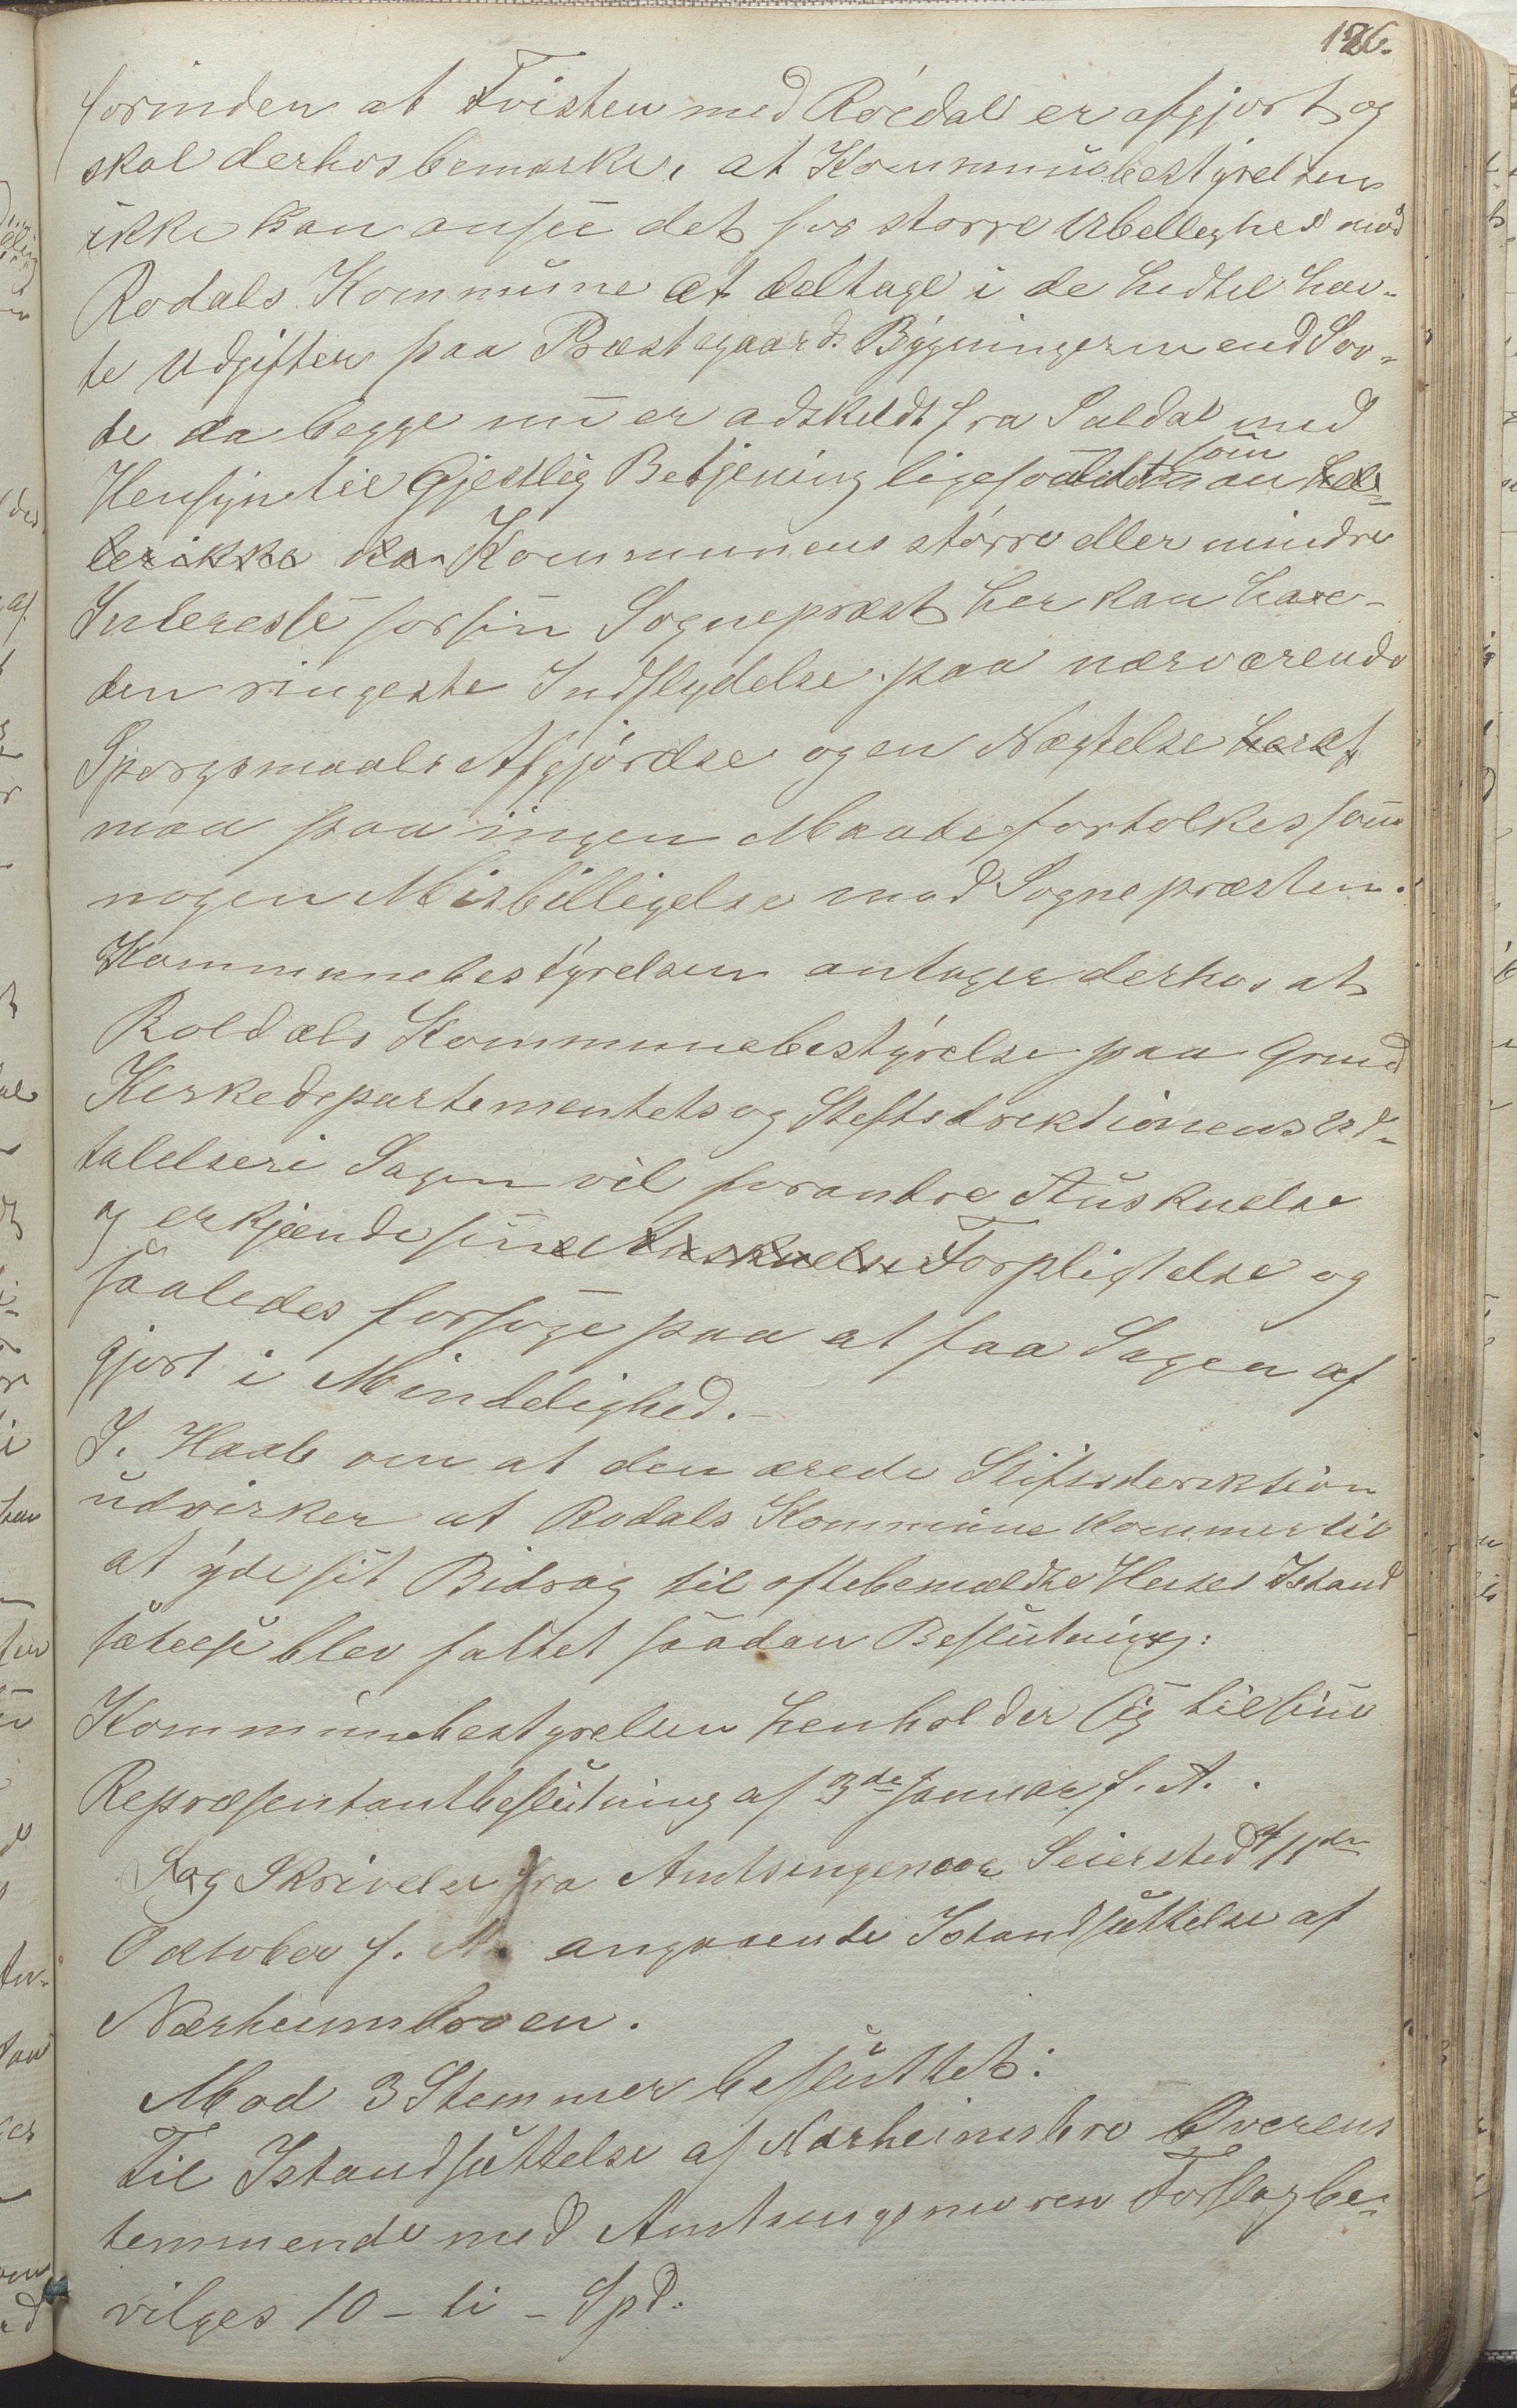 126.
forinden at Tvisten med Röedal er afgjort og
skal derhos bemærke, at Kommunebestyrelsen
ikke kan ansee det for større Ubelleghed mod
Rodals Kommune at deltage i de hidtil hav-
te Udgifter paa Præstegaards Bygningerne end Sov-
de da begge nu er adskildt fra Suldal med
Hensyn til Gjestlig Betjening ligesaalidt som an hel-
ler ikke da Kommunens større eller mindre
Interesse for sin Sogneprest her kan have
den ringeste Indflydelse paa nærværende
Spørgsmaals Afgjørelse og en Nægtelse heraf
maa paa ingen Maade fortolkes som
nogen Misbilligelse mod Sognepræsten.
Kommunebestyrelsen antager derhos at
Roldals Kommunebestyrelse paa Grund
Kirkedepartementets og Stiftsdirektionens Ud-
talelser i Sagen vil forandre Anskuelse
og erkjende sine Anskuelse Forpligtelse og
saaledes forsøge paa at faa Sagen af
gjort i Mindelighed.-
I. Haab om at den ærede Stiftsderektion
udvirker at Rodals Kommune kommer til
at yde sit Bidrag til oftebemældte Huses Istand
sætelse blev fattet saadan Beslutning:
Kommunebestyrelsen henholder sig til sine
Repræsentantbeslutning af 3de Januar f. A..
Sag Skrivelse fra Amtsingeniør Seiersted af 11te
October f. A. angaaende Istandsættelse af
Nærheimsbroen.
Mod 3 Stemmer besluttet:
Til Istandsættelse af Nærheimsbro Overens
temmende med Amtsingeniøren Forslag be-
vilges 10 - ti - Spd.